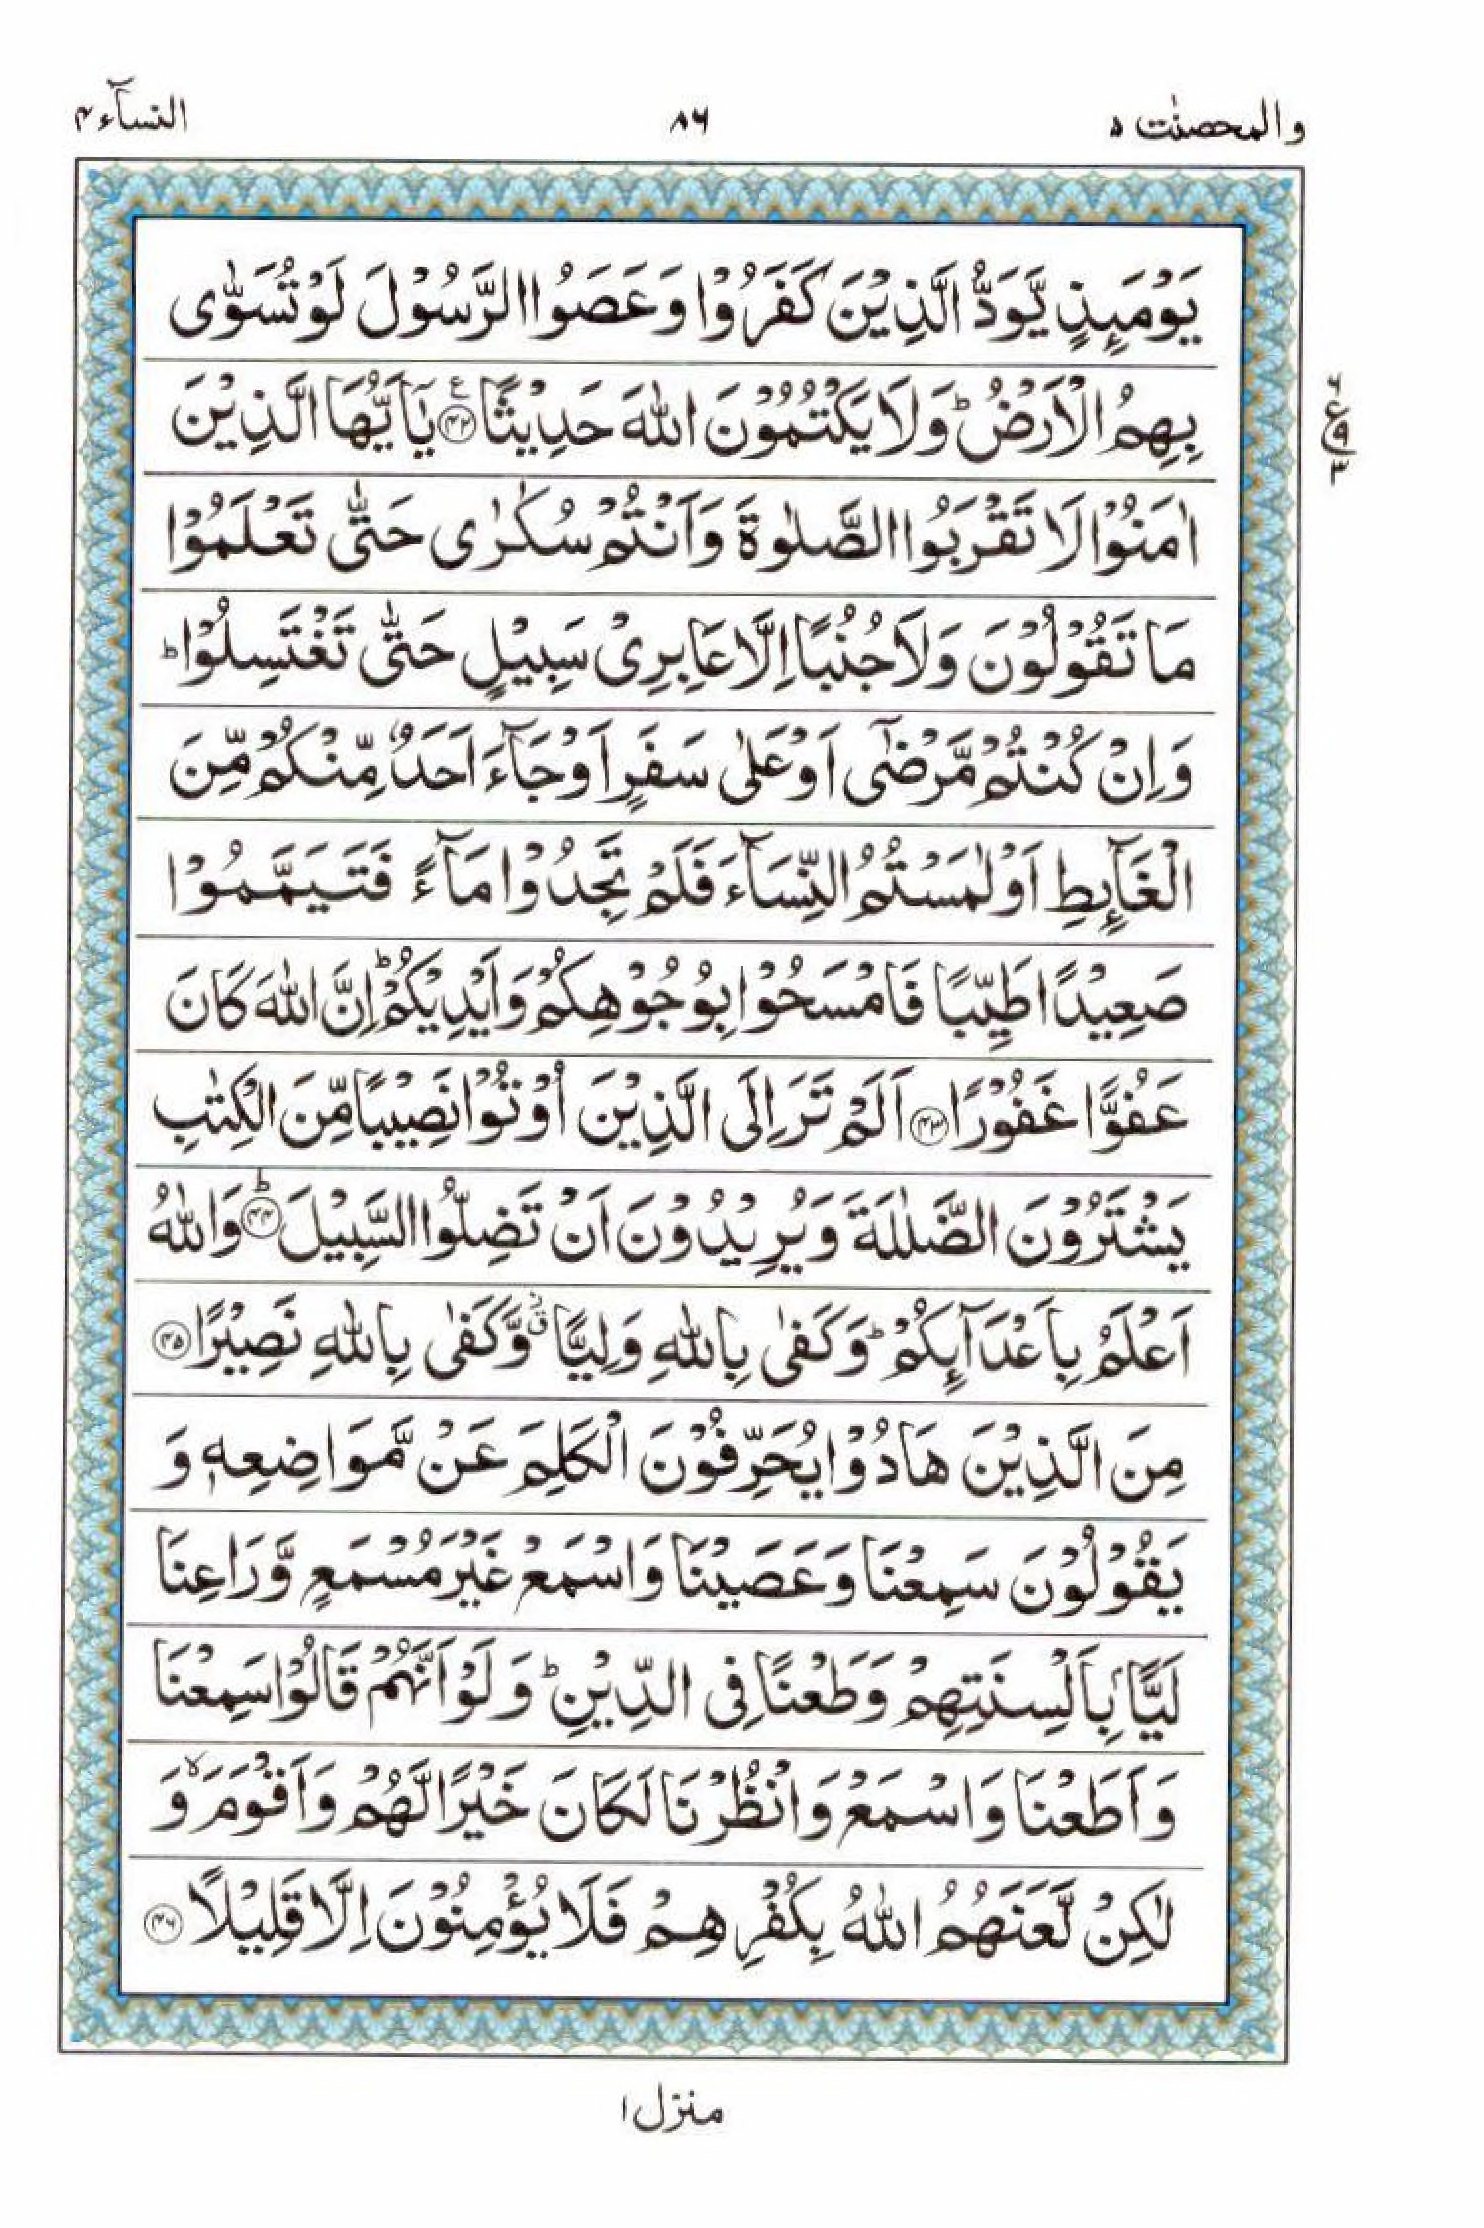 والمحصنٰت ۵
۸۶
النسآء ۴
يَوْمَىِٕذٍ يَّوَدُّ الَّذِيْنَ كَفَرُوْا وَعَصَوُا الرَّسُوْلَ لَوْ تُسَوّٰى
بِهِمُ الْاَرْضُؕ وَلَا يَكْتُمُوْنَ اللّٰهَ حَدِيْثًا ﴿۴۲﴾ع يٰۤاَيُّهَا الَّذِيْنَ
اٰمَنُوْا لَا تَقْرَبُوا الصَّلٰوةَ وَاَنْتُمْ سُكٰرٰى حَتّٰى تَعْلَمُوْا
مَا تَقُوْلُوْنَ وَلَا جُنُبًا اِلَّا عَابِرِىْ سَبِيْلٍ حَتّٰى تَغْتَسِلُوْاؕ
وَاِنْ كُنْتُمْ مَّرْضٰۤى اَوْ عَلٰى سَفَرٍ اَوْ جَآءَ اَحَدٌ مِّنْكُمْ مِّنَ
الْغَآىِٕطِ اَوْ لٰمَسْتُمُ النِّسَآءَ فَلَمْ تَجِدُوْا مَآءً فَتَيَمَّمُوْا
صَعِيْدًا طَيِّبًا فَامْسَحُوْا بِوُجُوْهِكُمْ وَاَيْدِيْكُمْؕ اِنَّ اللّٰهَ كَانَ
عَفُوًّا غَفُوْرًا ﴿۴۳﴾ اَلَمْ تَرَ اِلَى الَّذِيْنَ اُوْتُوْا نَصِيْبًا مِّنَ الْكِتٰبِ
يَشْتَرُوْنَ الضَّلٰلَةَ وَيُرِيْدُوْنَ اَنْ تَضِلُّوا السَّبِيْلَ ﴿۴۴﴾ؕ وَاللّٰهُ
اَعْلَمُ بِاَعْدَآىِٕكُمْؕ وَكَفٰى بِاللّٰهِ وَلِيًّا ق٘ وَّكَفٰى بِاللّٰهِ نَصِيْرًا ﴿۴۵﴾
مِنَ الَّذِيْنَ هَادُوْا يُحَرِّفُوْنَ الْكَلِمَ عَنْ مَّوَاضِعِهٖ وَ
يَقُوْلُوْنَ سَمِعْنَا وَعَصَيْنَا وَاسْمَعْ غَيْرَ مُسْمَعٍ وَّرَاعِنَا
لَيًّۢا بِاَلْسِنَتِهِمْ وَطَعْنًا فِى الدِّيْنِؕ وَلَوْ اَنَّهُمْ قَالُوْا سَمِعْنَا
وَاَطَعْنَا وَاسْمَعْ وَانْظُرْنَا لَكَانَ خَيْرًا لَّهُمْ وَاَقْوَمَۙ وَ
لٰكِنْ لَّعَنَهُمُ اللّٰهُ بِكُفْرِهِمْ فَلَا يُؤْمِنُوْنَ اِلَّا قَلِيْلًا ﴿۴۶﴾
۶
ع
۹
۳
منزل ۱